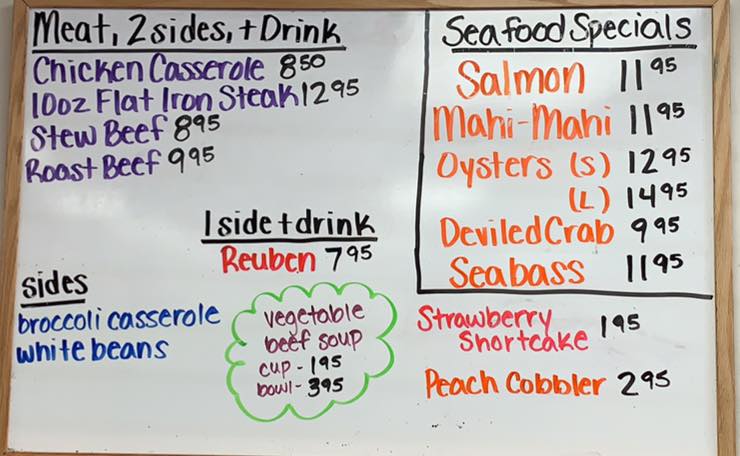 Meat, 2 sides, + Drink
Chicken Casserole 8 50
10oz Flat Iron Steak 12 95
Stew Beef 8 95
Roast Beef 9 95
1 side + drink
Reuben 7 95
sides
broccoli casserole
white beans
vegetable
beef soup
cup - 1 95
bowl - 3 95
Seafood Specials
Salmon 11 95
Mahi-Mahi 11 95
Oysters (s) 12 95
(L) 14 95
Deviled Crab 9 95
Seabass 11 95
Strawberry
Shortcake 1 95
Peach Cobbler 2 95